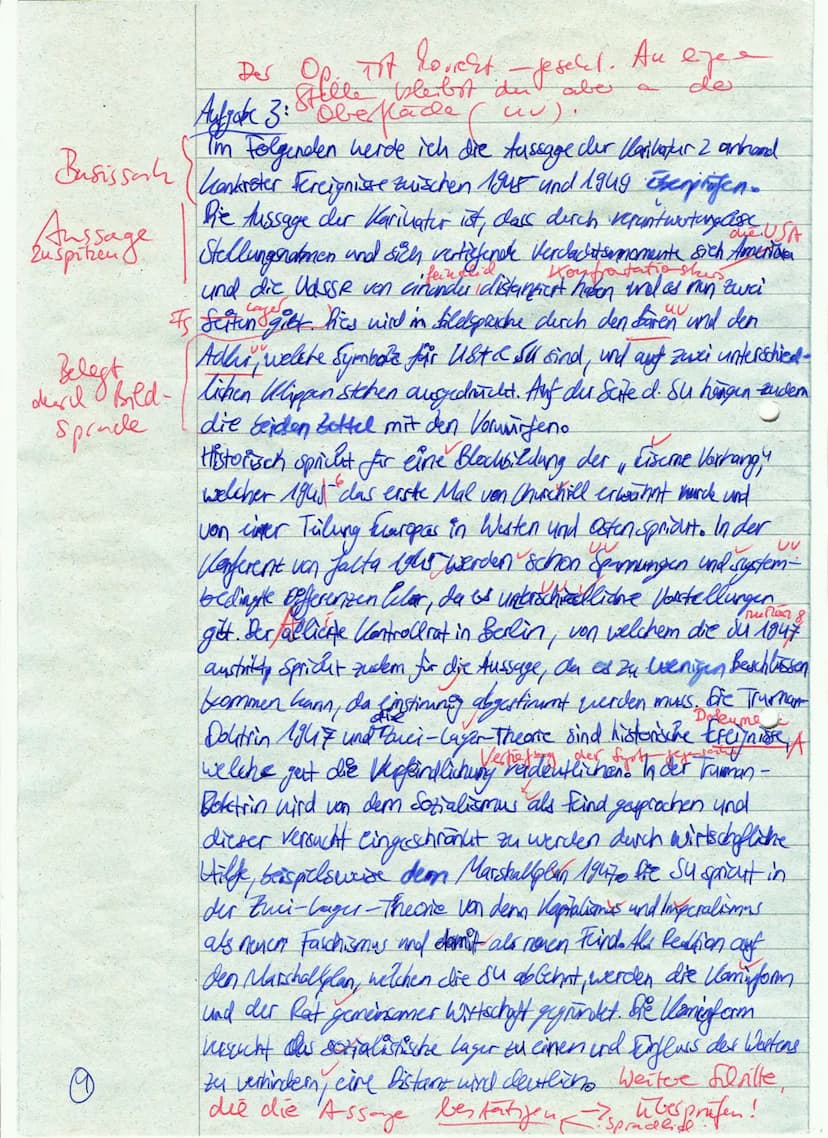 Der Op. ist korrekt -gesetzt. An einigen
Stelle bleibst du aber an der
Oberfläche (uv).
Aufgabe 3:
Im Folgenden werde ich die Aussage der Karikatur 2 anhand
Basissatz
konkreter Ereignisse zwischen 1945 und 1949 überprüfen.
Die Aussage der Karikatur ist, dass durch verantwortungslose
Aussage
zuspitzen
die USA
Stellungnahmen und sich vertiefende Verdachtsmomente sich Amerika
feindlich Konfrontationskurs
und die UdSSR von einander distanziert haben und es nun zwei
Lager
Seiten gibt. Dies wird in Bildsprache durch den Bären und den
Adler, welche Symbole für USA & SU sind, und auf zwei unterschied-
Belegt
durch Bild-
sprache
lichen Klippen stehen ausgedrückt. Auf der Seite d. SU hängen zudem
die beiden Zettel mit den Vorwürfen.
Historisch spricht für eine Blockbildung der „Eiserne Vorhang",
welcher 1946 das erste Mal von Churchill erwähnt wurde und
von einer Teilung Europas in Westen und Osten spricht. In der
Konferenz von Jalta 1945 werden schon Spannungen und system-
bedingte Differenzen klar, da es unterschiedliche Vorstellungen
gibt. Der alliierte Kontrollrat in Berlin, von welchem die SU 1947
austritt, spricht zudem für die Aussage, da es zu wenigen Beschlüssen
kommen kann, da einstimmig abgestimmt werden muss. Die Truman-
Dokumente
Doktrin 1947 und die Zwei-Lager-Theorie sind historische Ereignisse, A
Vertiefung der
welche gut die Verfeindlichung verdeutlichen. In der Truman-
Doktrin wird von dem Sozialismus als Feind gesprochen und
dieser versucht eingeschränkt zu werden durch wirtschaftliche
Hilfe, beispielsweise dem Marshallplan 1947. Die SU spricht in
der Zwei-Lager-Theorie von dem Kapitalismus und Imperalismus
als neuen Faschismus und damit als neuen Feind. Als Reaktion auf
den Marschallplan, welchen die SU ablehnt, werden die Kominform
und der Rat gemeinsamer Wirtschaft gegründet. Die Kominform
versucht das sozialistische Lager zu einen und Einfluss des Westens
zu verhindern, eine Distanz wird deutlich. Weitere Schritte,
die die Aussage bestätigen → überprüfen!
sprachlich.